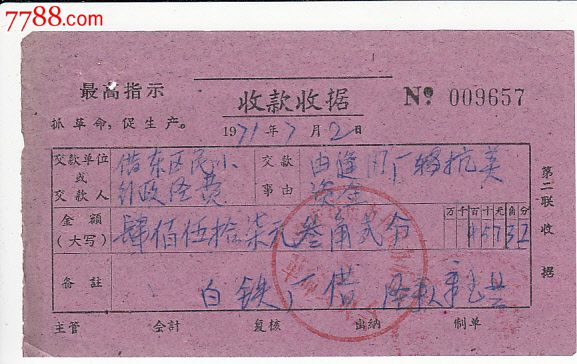 7788.com
最高指示
抓革命，促生产。
收款收据
№ 009657
1971年7月2日
交款单位或交款人
借东区民小行政经费
交款事由
由缝旧厂转抗美资金
金额（大写）
肆佰伍拾柒元叁角贰分
万千百十元角分
45732
备註
白铁厂借
第二联 收据
主管 会計 复核 出納 制单